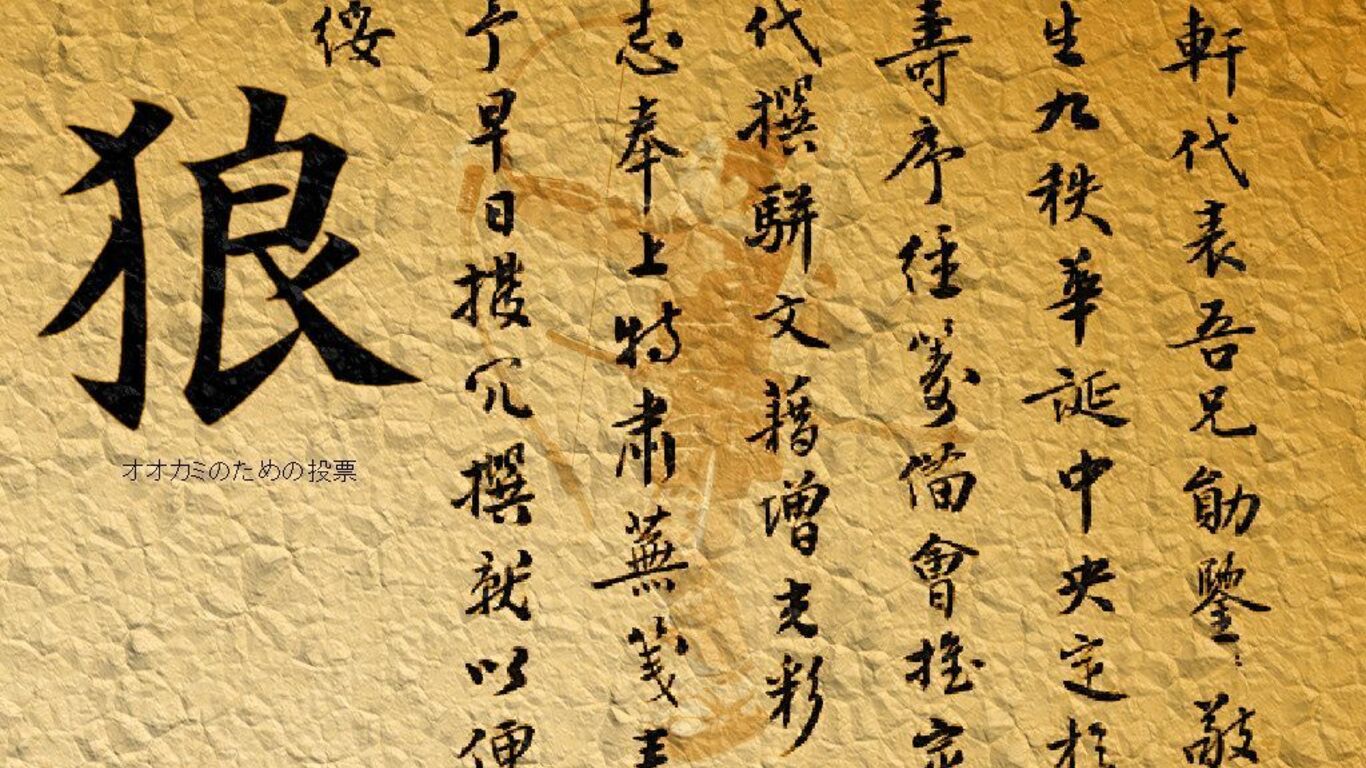 軒代表吾兄勛鑒:敬
生九秩華誕中央定於
壽序經籌備會推定
代撰駢文藉增光彩
志奉上特肅蕪箋
予早日撥冗撰就以便
綏
狼
オオカミのための投票